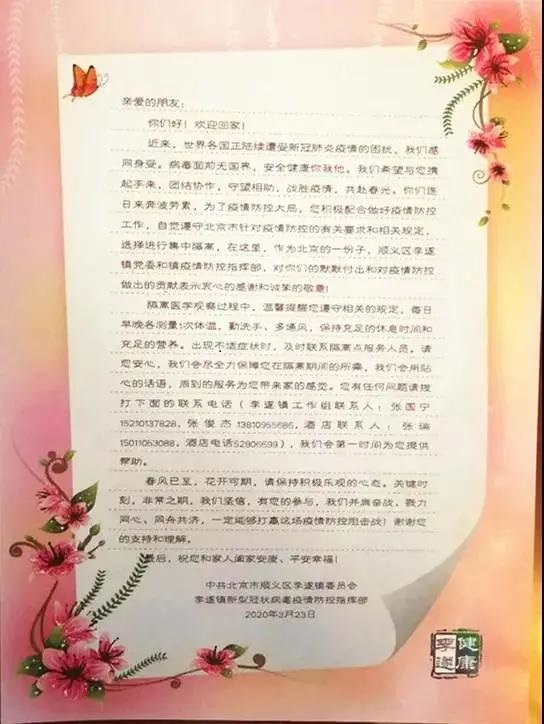 亲爱的朋友：
你们好！欢迎回家！
近来，世界各国正陆续遭受新冠肺炎疫情的困扰，我们感
同身受。病毒面前无国界，安全健康你我他。我们希望与您携
起手来，团结协作，守望相助，战胜疫情，共赴春光。你们连
日来奔波劳累，为了疫情防控大局，您积极配合做好疫情防控
工作，自觉遵守北京市针对疫情防控的有关要求和相关规定，
选择进行集中隔离，在这里，作为北京的一份子，顺义区李遂
镇党委和镇疫情防控指挥部，对你们的默默付出和对疫情防控
做出的贡献表示衷心的感谢和诚挚的敬意！
隔离医学观察过程中，温馨提醒您遵守相关的规定，每日
早晚各测量1次体温，勤洗手、多通风，保持充足的休息时间和
充足的营养。出现不适症状时，及时联系隔离点服务人员。请
您安心，我们会尽全力保障您在隔离期间的所需，我们会用贴
心的话语，周到的服务为您带来家的感觉。您有任何问题请拨
打下面的联系电话（李遂镇工作组联系人：张国宁
15210137828，张俊杰 13810955686，酒店联系人：张瑞
15011053088，酒店电话52806599），我们会第一时间为您提供
帮助。
春风已至，花开可期，请保持积极乐观的心态。关键时
刻，非常之期，我们坚信，有您的参与，我们并肩奋战、戮力
同心、同舟共济，一定能够打赢这场疫情防控阻击战！谢谢您
的支持和理解。
最后，祝您和家人阖家安康、平安幸福！
中共北京市顺义区李遂镇委员会
李遂镇新型冠状病毒疫情防控指挥部
2020年3月23日
健康
李遂